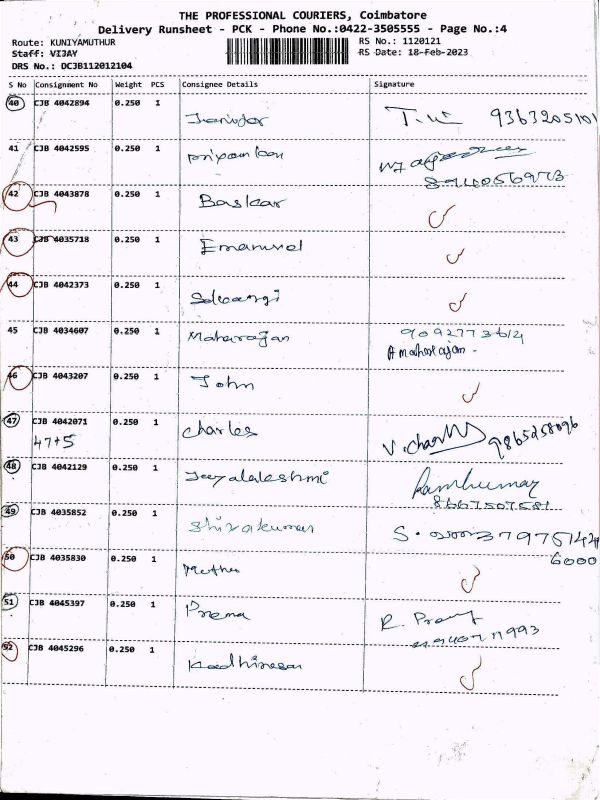 THE PROFESSIONAL COURIERS, Coimbatore
Delivery Runsheet - PCK - Phone No.:0422-3505555 - Page No.:4
Route: KUNIYAMUTHUR RS No.: 1120121
Staff: VIJAY RS Date: 18-Feb-2023
DRS No.: DCJB112012104
S No Consignment No Weight PCS Consignee Details Signature
40 CJB 4042894 0.250 1 9363205101
41 CJB 4042595 0.250 1
8940056973
42 CJB 4043878 0.250 1 Baskar
43 CJB 4035718 0.250 1 Emanuvel
44 CJB 4042373 0.250 1
45 CJB 4034607 0.250 1 Maharajan 9092773612
A maharajan -
46 CJB 4043207 0.250 1 John
47 CJB 4042071 0.250 1 Charles V. Charles 9865258096
47+5
48 CJB 4042129 0.250 1 Jeyalakshmi Ramkumar
8667507581
49 CJB 4035852 0.250 1 Shivakumar
6000
50 CJB 4035830 0.250 1 Muthu
51 CJB 4045397 0.250 1 Prema
52 CJB 4045296 0.250 1 Kadhiresan